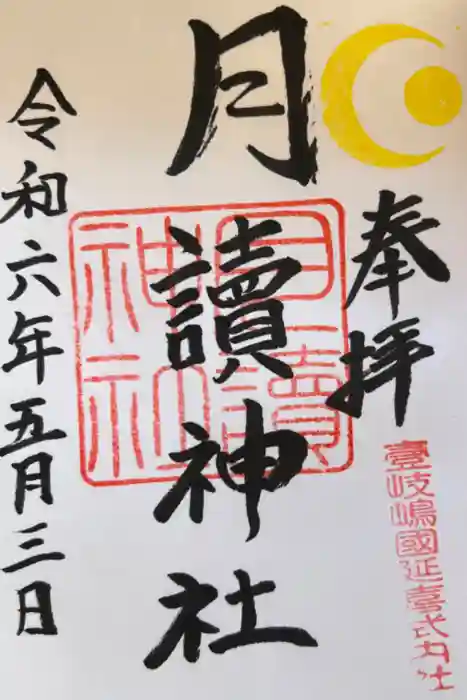 奉拝
壹岐嶋國延喜式内社
月讀神社
月讀神社
令和六年五月三日